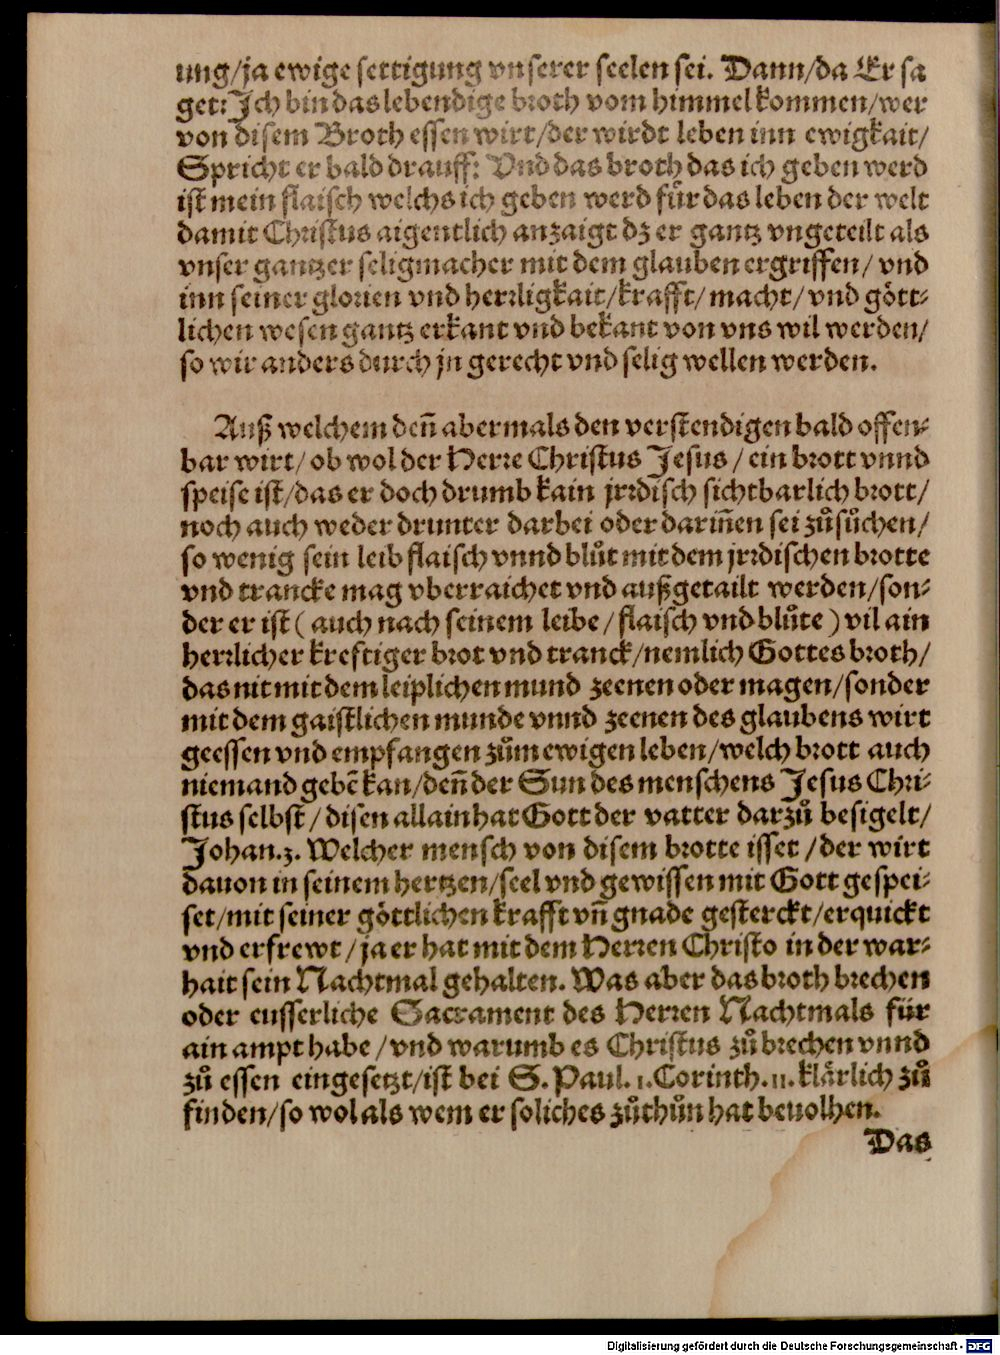 ung/ja ewige settigung vnserer seelen sei. Dann/da Er sa
get: Jch bin das lebendige broth vom himmel kommen/wer
von disem Broth essen wirt/der wirdt leben inn ewigkait/
Spricht er bald drauff: Vnd das broth das ich geben werd
ist mein flaisch welchs ich geben werd fuͤr das leben der welt
damit Christus aigentlich anzaigt dz er gantz vngeteilt als
vnser gantzer seligmacher mit dem glauben ergriffen/ vnd
inn seiner glorien vnd herrligkait/krafft/macht/vnd gött⸗
lichen wesen gantz erkant vnd bekant von vns wil werden/
so wir anders durch jn gerecht vnd selig wellen werden.
Auß welchem deñ abermals den verstendigen bald offen⸗
bar wirt/ ob wol der Herre Christus Jesus / ein brott vnnd
speise ist/das er doch drumb kain jrrdisch sichtbarlich brott/
noch auch weder drunter darbei oder dariñen sei zuͦsuͦchen/
so wenig sein leib flaisch vnnd bluͦt mit dem jrrdischen brotte
vnd trancke mag vberraichet vnd außgetailt werden/son⸗
der er ist ( auch nach seinem leibe / flaisch vnd bluͦte ) vil ain
herrlicher kreftiger brot vnd tranck/nemlich Gottes broth/
das nit mit dem leiplichen mund zeenen oder magen/sonder
mit dem gaistlichen munde vnnd zeenen des glaubens wirt
geessen vnd empfangen zuͦm ewigen leben/welch brott auch
niemand gebẽ kan/deñ der Sun des menschens Jesus Chri⸗
stus selbst / disen allain hat Gott der vatter darzuͦ besigelt/
Johan.3. Welcher mensch von disem brotte isset /der wirt
dauon in seinem hertzen/seel vnd gewissen mit Gott gespei⸗
set/mit seiner göttlichen krafft vñ gnade gesterckt/erquickt
vnd erfrewt / ja er hat mit dem Herren Christo in der war⸗
hait sein Nachtmal gehalten. Was aber das broth brechen
oder eusserliche Sacrament des Herren Nachtmals für
ain ampt habe / vnd warumb es Christus zuͦ brechen vnnd
zuͦ essen eingesetzt/ist bei S. Paul. 1. Corinth. 11. klärlich zuͦ
finden/so wol als wem er soliches zuͦthuͦn hat beuolhen.
Das
Digitalisierung gefördert durch die Deutsche Forschungsgemeinschaft - DFG